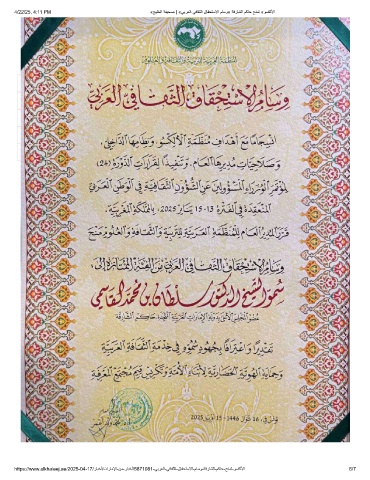 4/22/25, 4:11 PM
«الألكسو» تمنح حاكم الشارقة «وسام الاستحقاق الثقافي العربي» | صحيفة الخليج
المنظمة العربية للتربية والثقافة والعلوم
وسام الاستحقاق الثقافي العربي
انسجامًا مع أهداف منظمة الألكسو، ونظامها الداخلي،
وصلاحيات مديرها العام، وتنفيذًا لقرارات الدورة (24)
لمؤتمر الوزراء المسؤولين عن الشؤون الثقافية في الوطن العربي
المنعقدة في الفترة 13-15 يناير 2025، بالمملكة المغربية،
قرر المدير العام للمنظمة العربية للتربية والثقافة والعلوم منح
وسام الاستحقاق الثقافي العربي من الفئة الممتازة إلى:
سمو الشيخ الدكتور سلطان بن محمد القاسمي
عضو المجلس الأعلى لدولة الإمارات العربية المتحدة، حاكم الشارقة
تقديرًا واعترافًا بجهود سموه في خدمة الثقافة العربية
وحماية الهوية الحضارية لأبناء الأمة وتكريس قيم مجتمع المعرفة
تونس في، 16 شوال 1446 / 15
2025
https://www.alkhaleej.ae/2025-04-17/
6/7